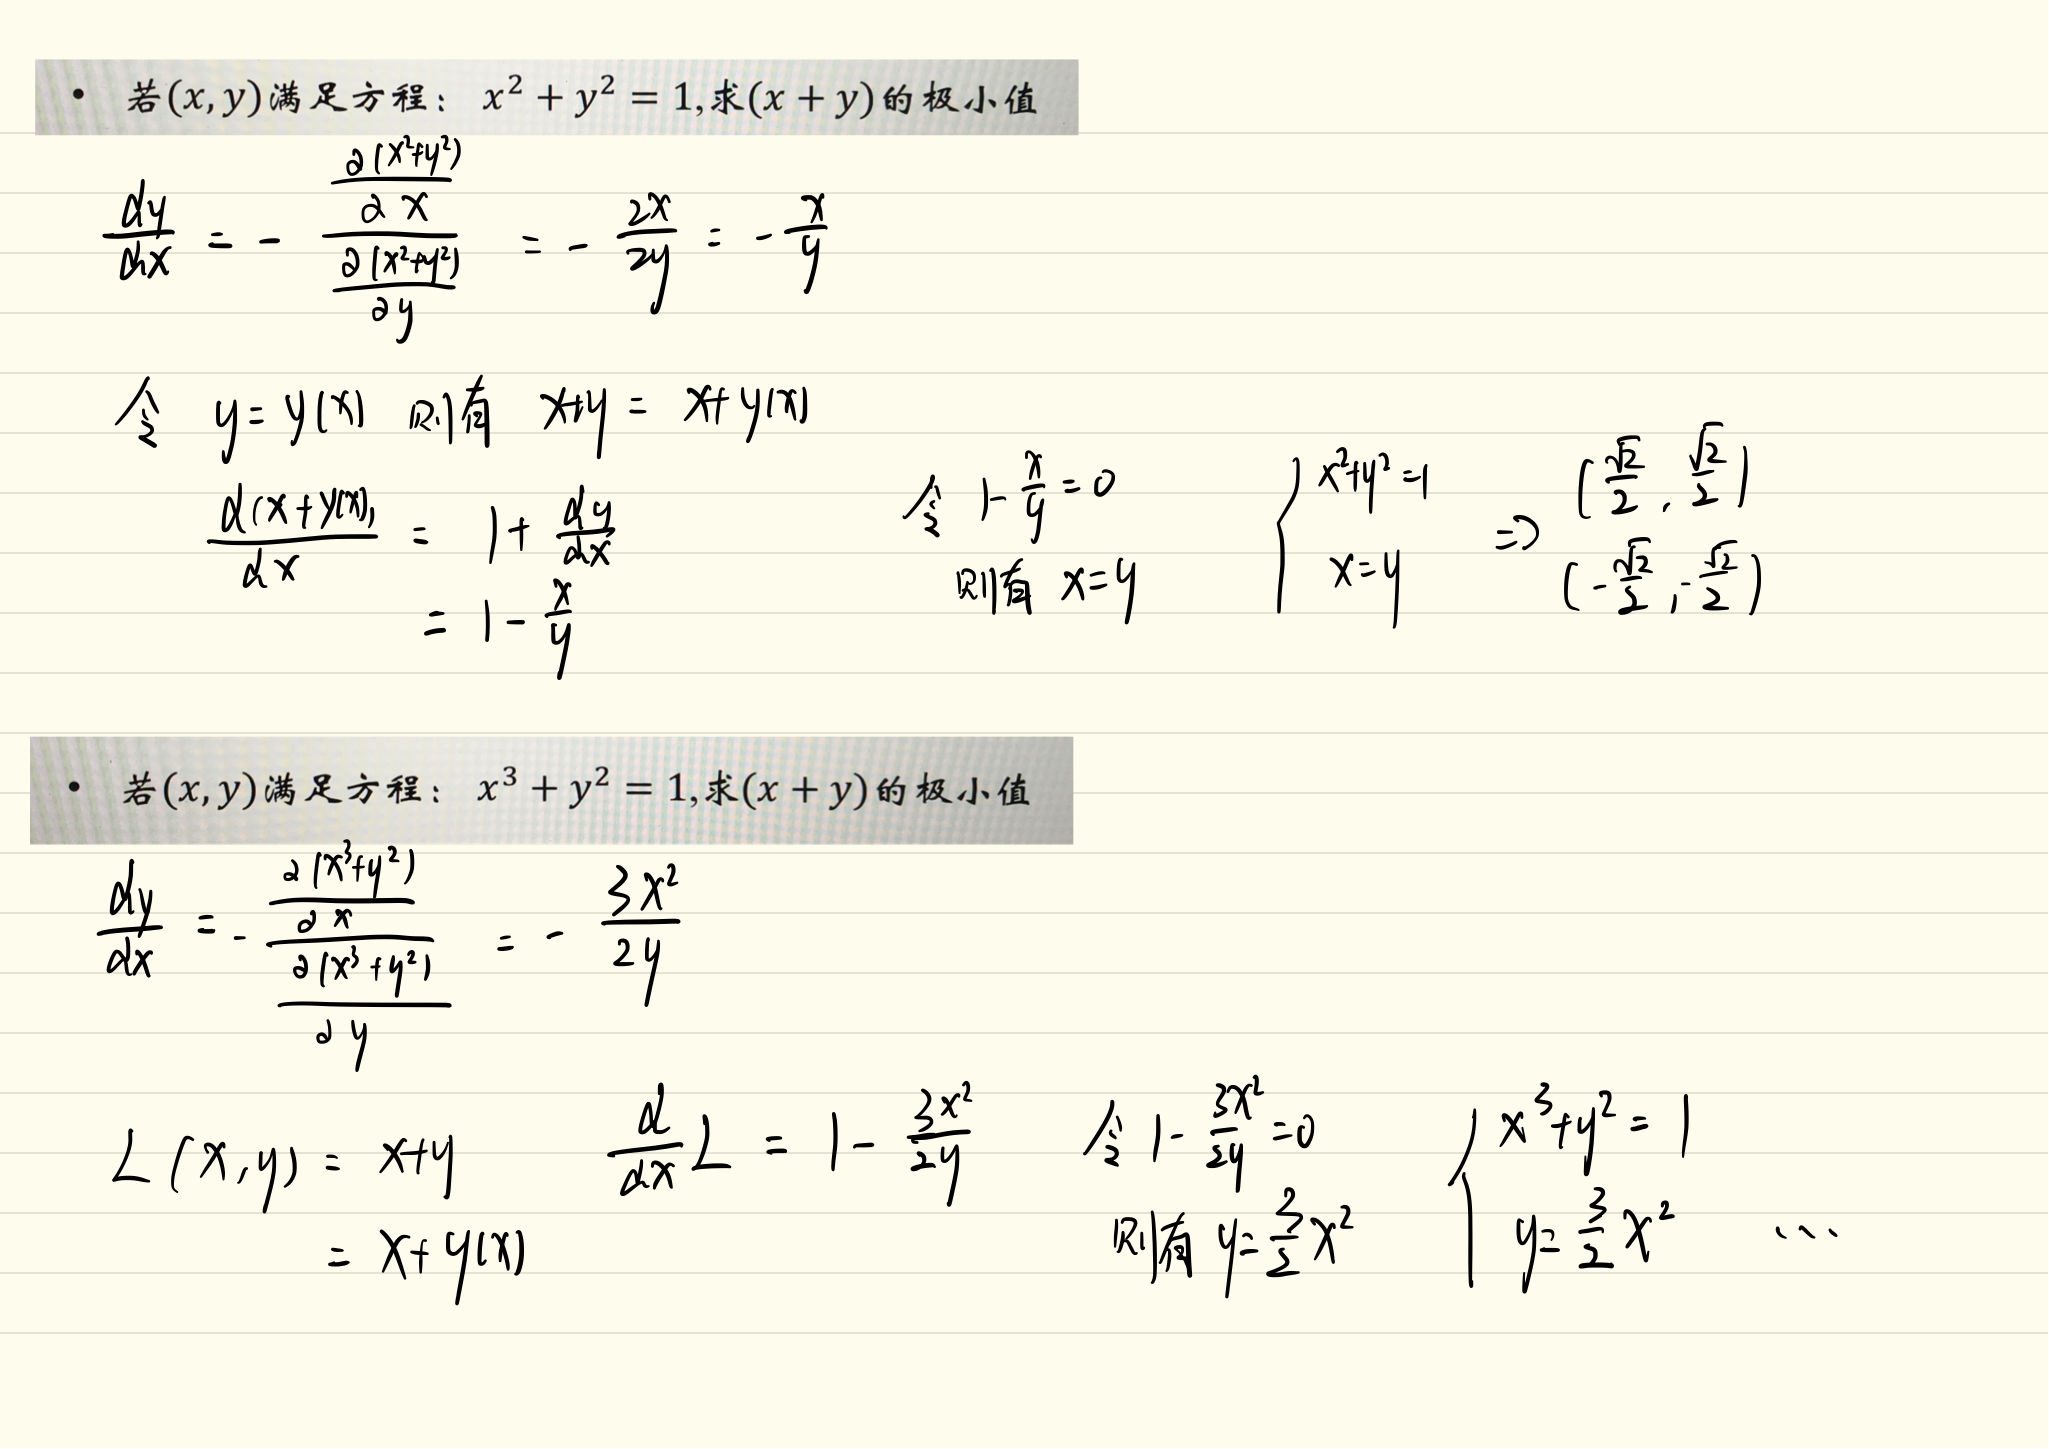 • 若(x, y)满足方程: x² + y² = 1,求(x + y)的极小值
dy/dx = - (∂(x²+y²)/∂x)/(∂(x²+y²)/∂y) = - 2x/2y = - x/y
令 y = y(x) 则有 x+y = x+y(x)
d(x+y(x))/dx = 1 + dy/dx
= 1 - x/y
令 1 - x/y = 0
则有 x=y
{ x²+y²=1
x=y
⇒ (√2/2, √2/2)
(-√2/2, -√2/2)
• 若(x, y)满足方程: x³ + y² = 1,求(x + y)的极小值
dy/dx = - (∂(x³+y²)/∂x)/(∂(x³+y²)/∂y) = - 3x²/2y
L(x,y) = x+y
= x+y(x)
d/dx L = 1 - 3x²/2y
令 1 - 3x²/2y = 0
则有 y = 3/2 x²
{ x³+y² = 1
y = 3/2 x² ...